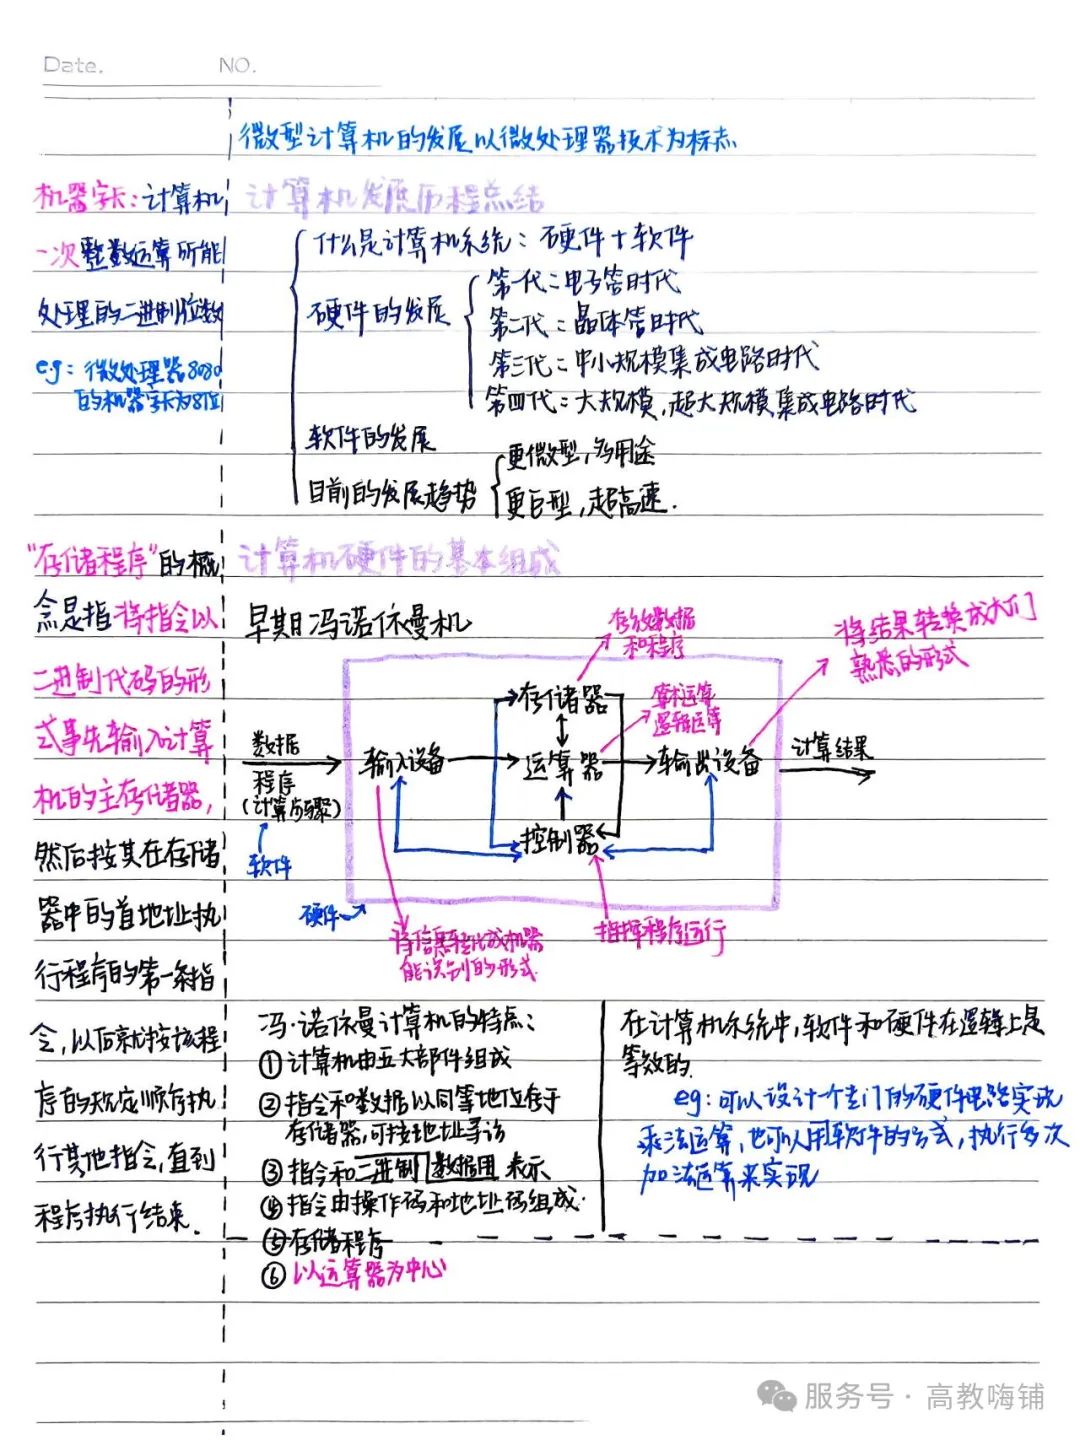 Date.
NO.
微型计算机的发展以微处理器技术为标志
机器字长:计算机
一次整数运算所能
处理的二进制位数
eg:微处理器8080
的机器字长为8位
计算机发展历程总结
什么是计算机系统:硬件+软件
硬件的发展
第一代:电子管时代
第二代:晶体管时代
第三代:中小规模集成电路时代
第四代:大规模,超大规模集成电路时代
软件的发展
目前的发展趋势
更微型,多用途
更巨型,超高速.
"存储程序"的概
念是指将指令以
二进制代码的形
式事先输入计算
机的主存储器,
然后按其在存储
器中的首地址执
行程序的第一条指
令,以后就按该程
序的规定顺序执
行其他指令,直到
程序执行结束.
计算机硬件的基本组成
早期冯诺依曼机
存放数据
和程序
将结果转换成人们
熟悉的形式
存储器
算术运算
逻辑运算
数据
程序
(计算步骤)
软件
输入设备
运算器
输出设备
计算结果
控制器
硬件
将信息转化成机器
能识别的形式
指挥程序运行
冯·诺依曼计算机的特点:
①计算机由五大部件组成
②指令和数据以同等地位存于
存储器,可按地址寻访
③指令和数据用二进制表示
④指令由操作码和地址码组成.
⑤存储程序
⑥以运算器为中心
在计算机系统中,软件和硬件在逻辑上是
等效的.
eg:可以设计一个专门的硬件电路实现
乘法运算,也可以用软件的方式,执行多次
加法运算来实现
服务号·高教嗨铺